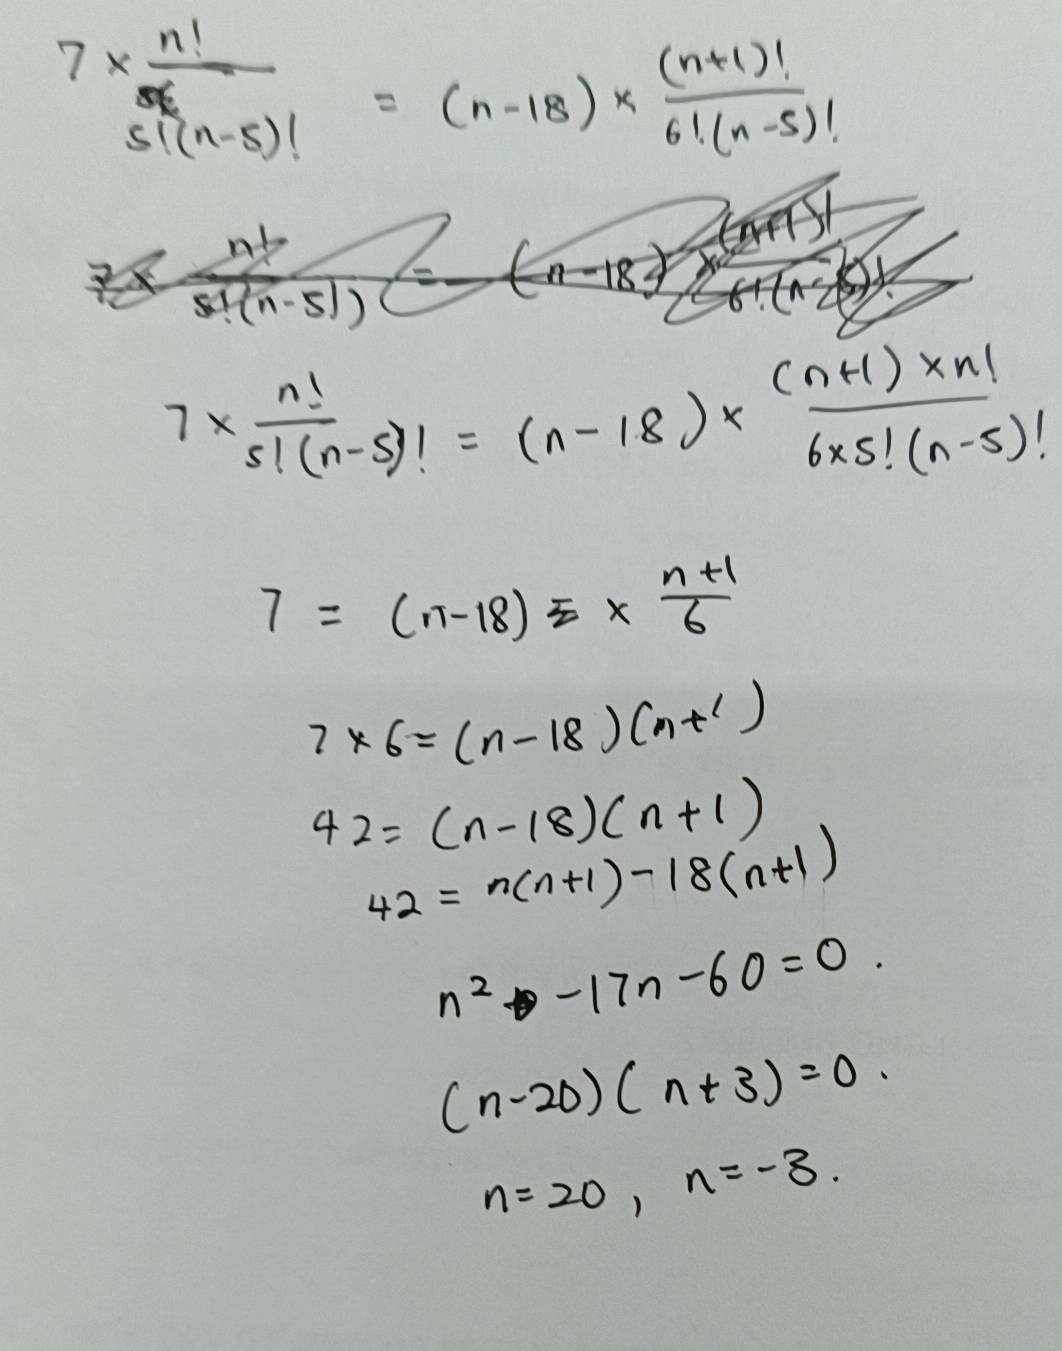 7 × n!/5!(n-5)! = (n-18) × (n+1)!/6!(n-5)!
7 × n!/5!(n-5)! = (n-18) × (n+1) × n!/6×5!(n-5)!
7 = (n-18) × n+1/6
7 × 6 = (n-18)(n+1)
42 = (n-18)(n+1)
42 = n(n+1)-18(n+1)
n² -17n -60 = 0.
(n-20)(n+3) = 0.
n = 20, n = -3.